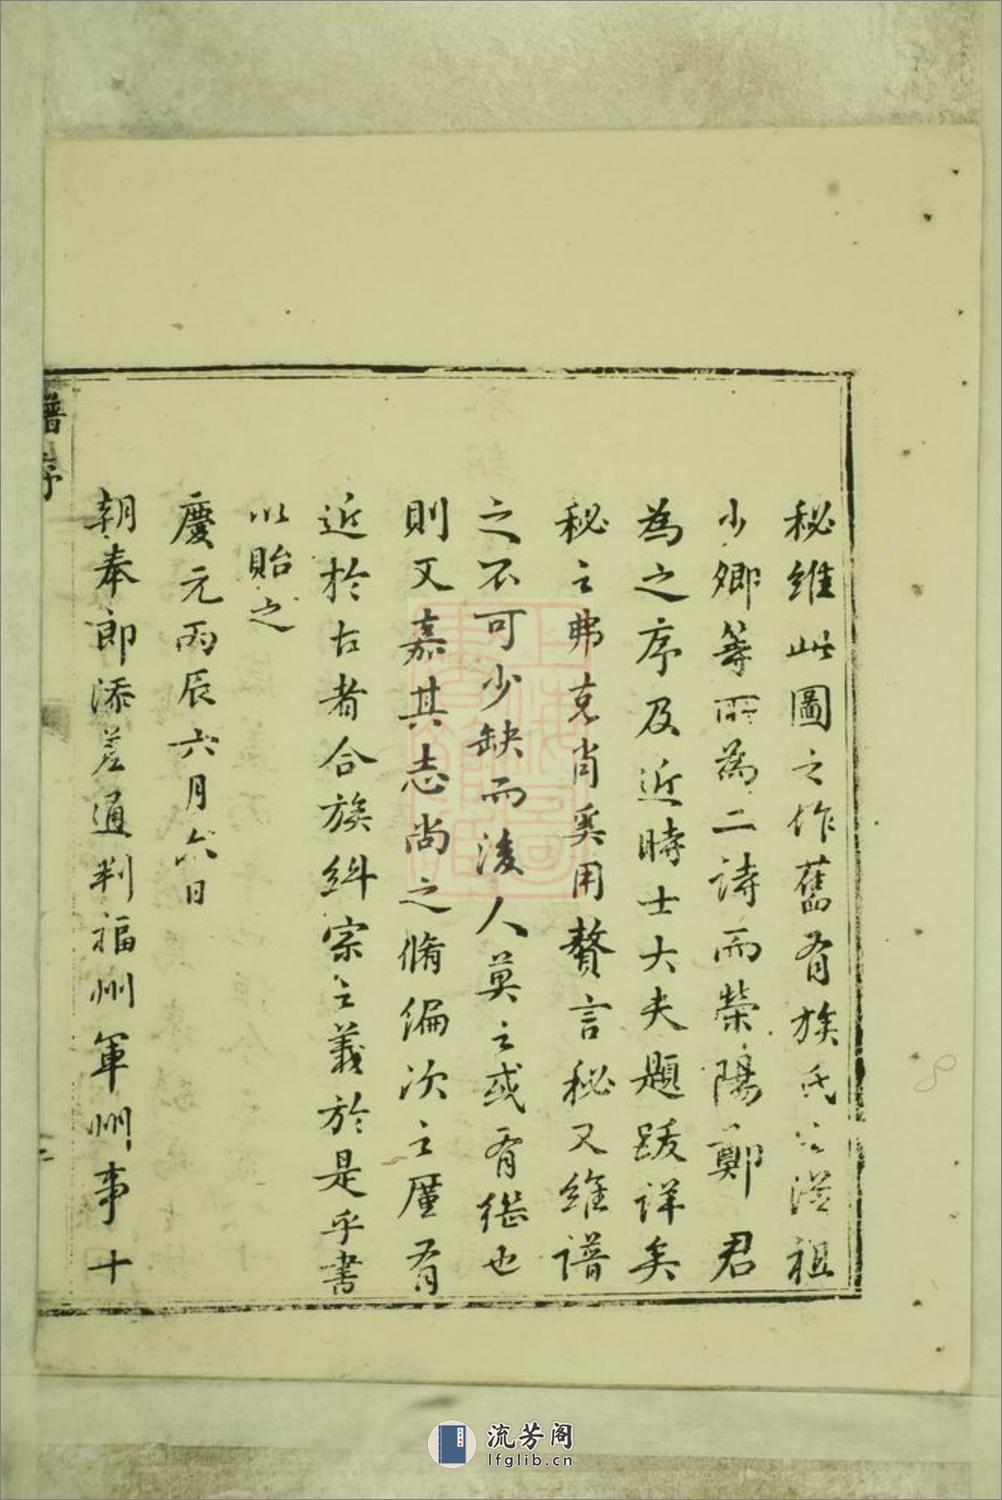 秘維此圖之作舊有族氏之從祖
少卿等所為二詩而榮陽鄭君
為之序及近時士大夫題跋詳矣
秘之弗克肖奚用贅言秘又維譜
之不可少缺而後人莫之或有繼也
則又嘉其志尚之脩編次之厪有
近於古者合族糾宗之義於是乎書
以貽之
慶元丙辰六月六日
朝奉郎添差通判福州軍州事十
譜序
流芳阁
lfglib.cn